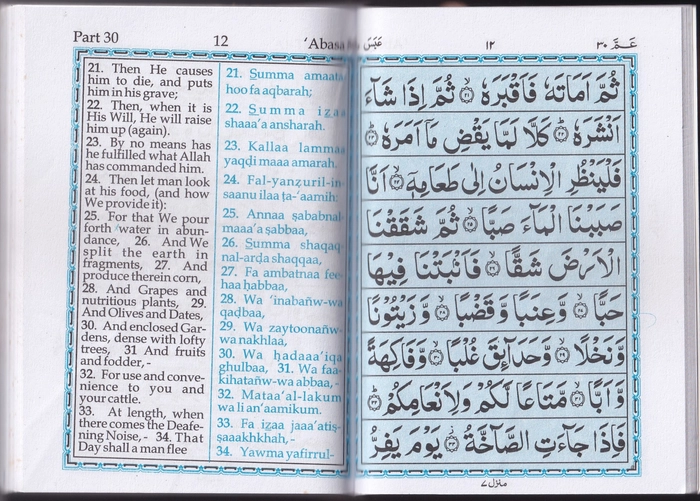 Part 30
12
'Abasa
21. Then He causes
him to die, and puts
him in his grave;
22. Then, when it is
His Will, He will raise
him up (again).
23. By no means has
he fulfilled what Allah
has commanded him.
24. Then let man look
at his food, (and how
We provide it):
25. For that We pour
forth water in abun-
dance, 26. And We
split the earth in
fragments, 27. And
produce therein corn,
28. And Grapes and
nutritious plants, 29.
And Olives and Dates,
30. And enclosed Gar-
dens, dense with lofty
trees, 31 And fruits
and fodder, -
32. For use and conve-
nience to you and
your cattle.
33. At length, when
there comes the Deafe-
ning Noise,- 34. That
Day shall a man flee
21. Summa amaata
hoo fa aqbarah;
22. Summa izaa
shaaa'a ansharah.
23. Kallaa lammaa
yaqdi maaa amarah.
24. Fal-yanzuril-in-
saanu ilaa ṭa-'aamih:
25. Annaa ṣababnal-
maaa'a ṣabbaa,
26. Summa shaqaq
nal-arda shaqqaa,
27. Fa ambatnaa fee-
haa ḥabbaa,
28. Wa 'inabañw-wa
qaḍbaa,
29. Wa zaytoonañw-
wa nakhlaa,
30. Wa ḥadaaa'iqa
ghulbaa, 31. Wa faa-
kihatañw-wa abbaa, -
32. Mataa'al-lakum
wa li an'aamikum.
33. Fa izaa jaaa'atiṣ-
ṣaaakhkhah,-
34. Yawma yafirrul-
عَبَسَ
١٢
عَمَّ ٣٠
ثُمَّ اَمَاتَهٗ فَاَقْبَرَهٗ ۙ﴿۲۱﴾ ثُمَّ اِذَا شَآءَ
اَنْشَرَهٗ ؕ﴿۲۲﴾ كَلَّا لَمَّا يَقْضِ مَاۤ اَمَرَهٗ ؕ﴿۲۳﴾
فَلْيَنْظُرِ الْاِنْسَانُ اِلٰى طَعَامِهٖۤ ۙ﴿۲۴﴾ اَنَّا
صَبَبْنَا الْمَآءَ صَبًّا ۙ﴿۲۵﴾ ثُمَّ شَقَقْنَا
الْاَرْضَ شَقًّا ۙ﴿۲۶﴾ فَاَنْۢبَتْنَا فِيْهَا
حَبًّا ۙ﴿۲۷﴾ وَّعِنَبًا وَّقَضْبًا ۙ﴿۲۸﴾ وَّزَيْتُوْنًا
وَّنَخْلًا ۙ﴿۲۹﴾ وَّحَدَآئِقَ غُلْبًا ۙ﴿۳۰﴾ وَّفَاكِهَةً
وَّاَبًّا ۙ﴿۳۱﴾ مَّتَاعًا لَّكُمْ وَلِاَنْعَامِكُمْ ؕ﴿۳۲﴾
فَاِذَا جَآءَتِ الصَّآخَّةُ ۫﴿۳۳﴾ يَوْمَ يَفِرُّ
منزل ٧